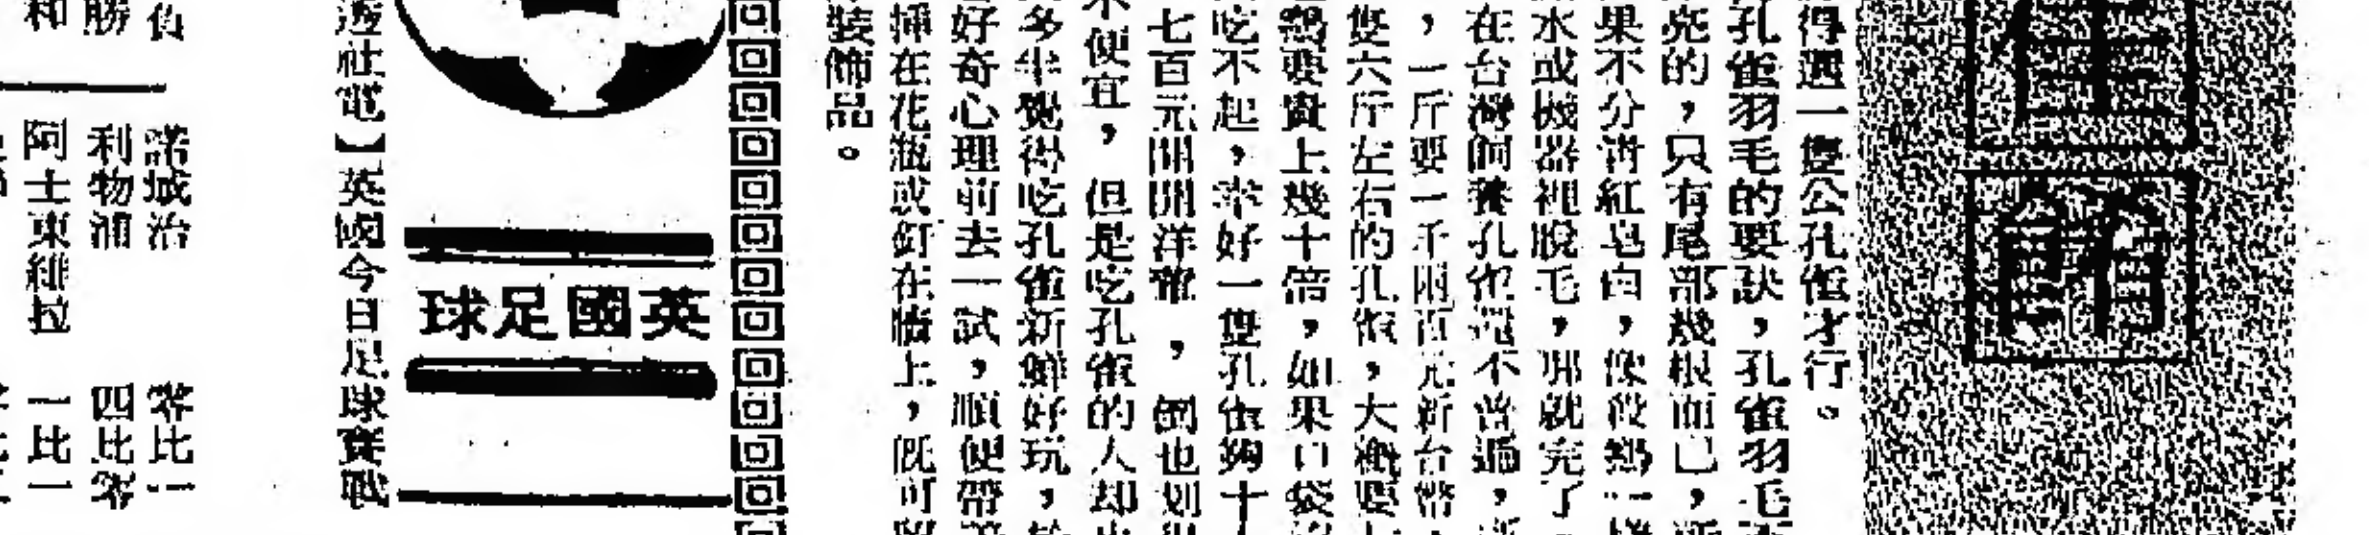 得選一隻公孔雀才行。
孔雀羽毛的要訣，孔雀羽毛
亮的，只有尾部幾根而已，
果不分青紅皂白，像殺鷄一樣
水或機器裡脫毛，那就完了
在台灣飼養孔雀還不普遍，
，一斤要一千兩百元新台幣，
隻六斤左右的孔雀，大概要
鷄要貴上幾十倍，如果口袋
吃不起，幸好一隻孔雀夠十
七百元開開洋葷，倒也划
不便宜，但是吃孔雀的人却
多半覺得吃孔雀新鮮好玩，
好奇心理前去一試，順便帶
插在花瓶或釘在牆上，既可
裝飾品。
英國足球
透社電】英國今日足球賽戰
負 諾城治 零比一
勝 利物浦 四比零
和 阿士東維拉 一比一